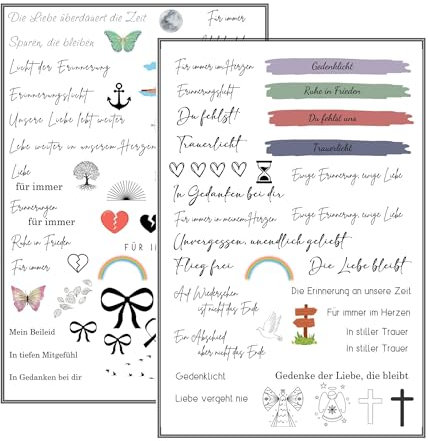 Die Liebe überdauert die Zeit
Für immer
Spuren, die bleiben
Licht der Erinnerung
Erinnerungslicht
Unsere Liebe lebt weiter
Lebe weiter in unserem Herzen
Liebe
für immer
Erinnerungen
für immer
Ruhe in Frieden
FÜR I
Für immer
Mein Beileid
In tiefen Mitgefühl
In Gedanken bei dir
Für immer im Herzen
Gedenklicht
Erinnerungslicht
Ruhe in Frieden
Du fehlst!
Du fehlst uns
Trauerlicht
Trauerlicht
Ewige Erinnerung, ewige Liebe
In Gedanken bei dir
Für immer in meinem Herzen
Ewige Erinnerung, ewige Liebe
Unvergessen, unendlich geliebt
Flieg frei
Die Liebe bleibt
Auf Wiedersehen
ist nicht das Ende
Die Erinnerung an unsere Zeit
Für immer im Herzen
Ein Abschied
aber nicht das Ende
in stiller Trauer
in stiller Trauer
Gedenklicht
Gedenke der Liebe, die bleibt
Liebe vergeht nie